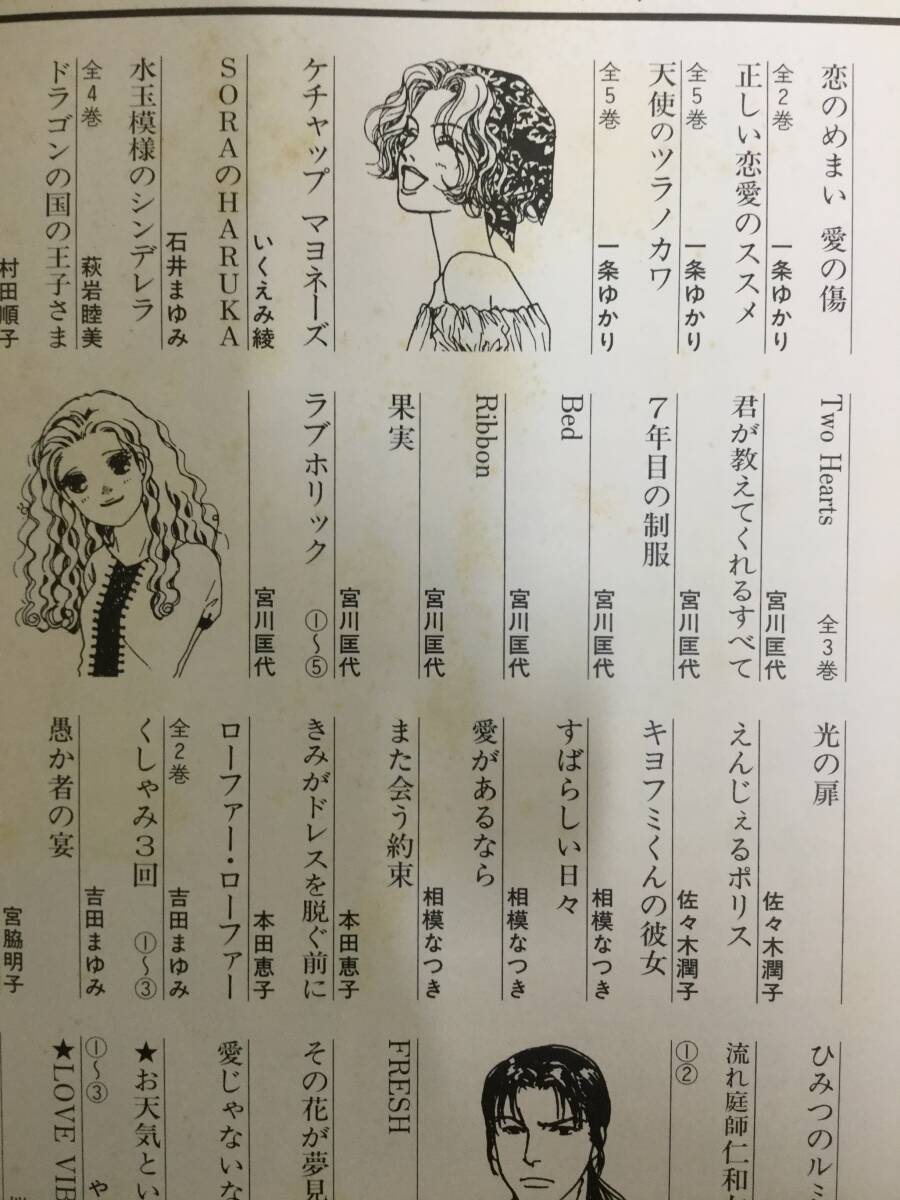 恋のめまい 愛の傷
全2巻 一条ゆかり
正しい恋愛のススメ
全5巻 一条ゆかり
天使のツラノカワ
全5巻 一条ゆかり
ケチャップ マヨネーズ
いくえみ綾
SORAのHARUKA
石井まゆみ
水玉模様のシンデレラ
全4巻 萩岩睦美
ドラゴンの国の王子さま
村田順子
Two Hearts 全3巻
宮川匡代
君が教えてくれるすべて
宮川匡代
7年目の制服
宮川匡代
Bed
宮川匡代
Ribbon
宮川匡代
果実
宮川匡代
ラブホリック ①〜⑤
宮川匡代
光の扉
佐々木潤子
えんじぇるポリス
佐々木潤子
キヨフミくんの彼女
相模なつき
すばらしい日々
相模なつき
愛があるなら
相模なつき
また会う約束
本田恵子
きみがドレスを脱ぐ前に
本田恵子
ローファー・ローファー
全2巻 吉田まゆみ
くしゃみ3回 ①〜③
吉田まゆみ
愚か者の宴
宮脇明子
ひみつのル
流れ庭師仁和
①②
FRESH
その花が夢見
愛じゃないな
★お天気とい
①〜③ や
★LOVE VIB